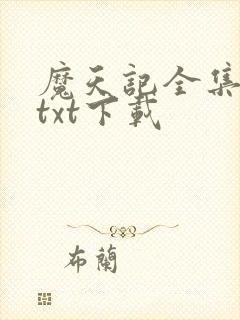 魔天記全集
txt下載
布蘭